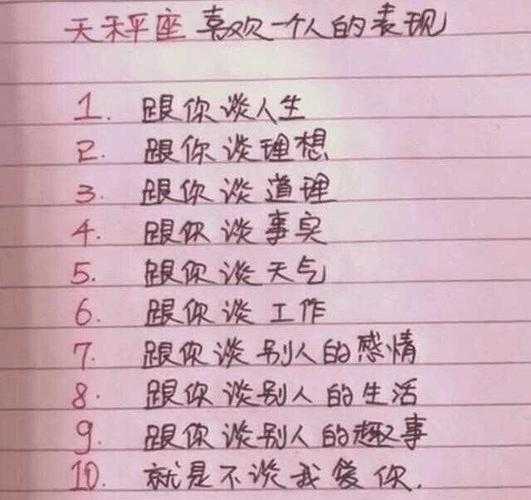 天秤座 喜欢一个人的表现
1. 跟你谈人生
2. 跟你谈理想
3. 跟你谈道理
4. 跟你谈事实
5. 跟你谈天气
6. 跟你谈工作
7. 跟你谈别人的感情
8. 跟你谈别人的生活
9. 跟你谈别人的趣事
10. 就是不谈我爱你.